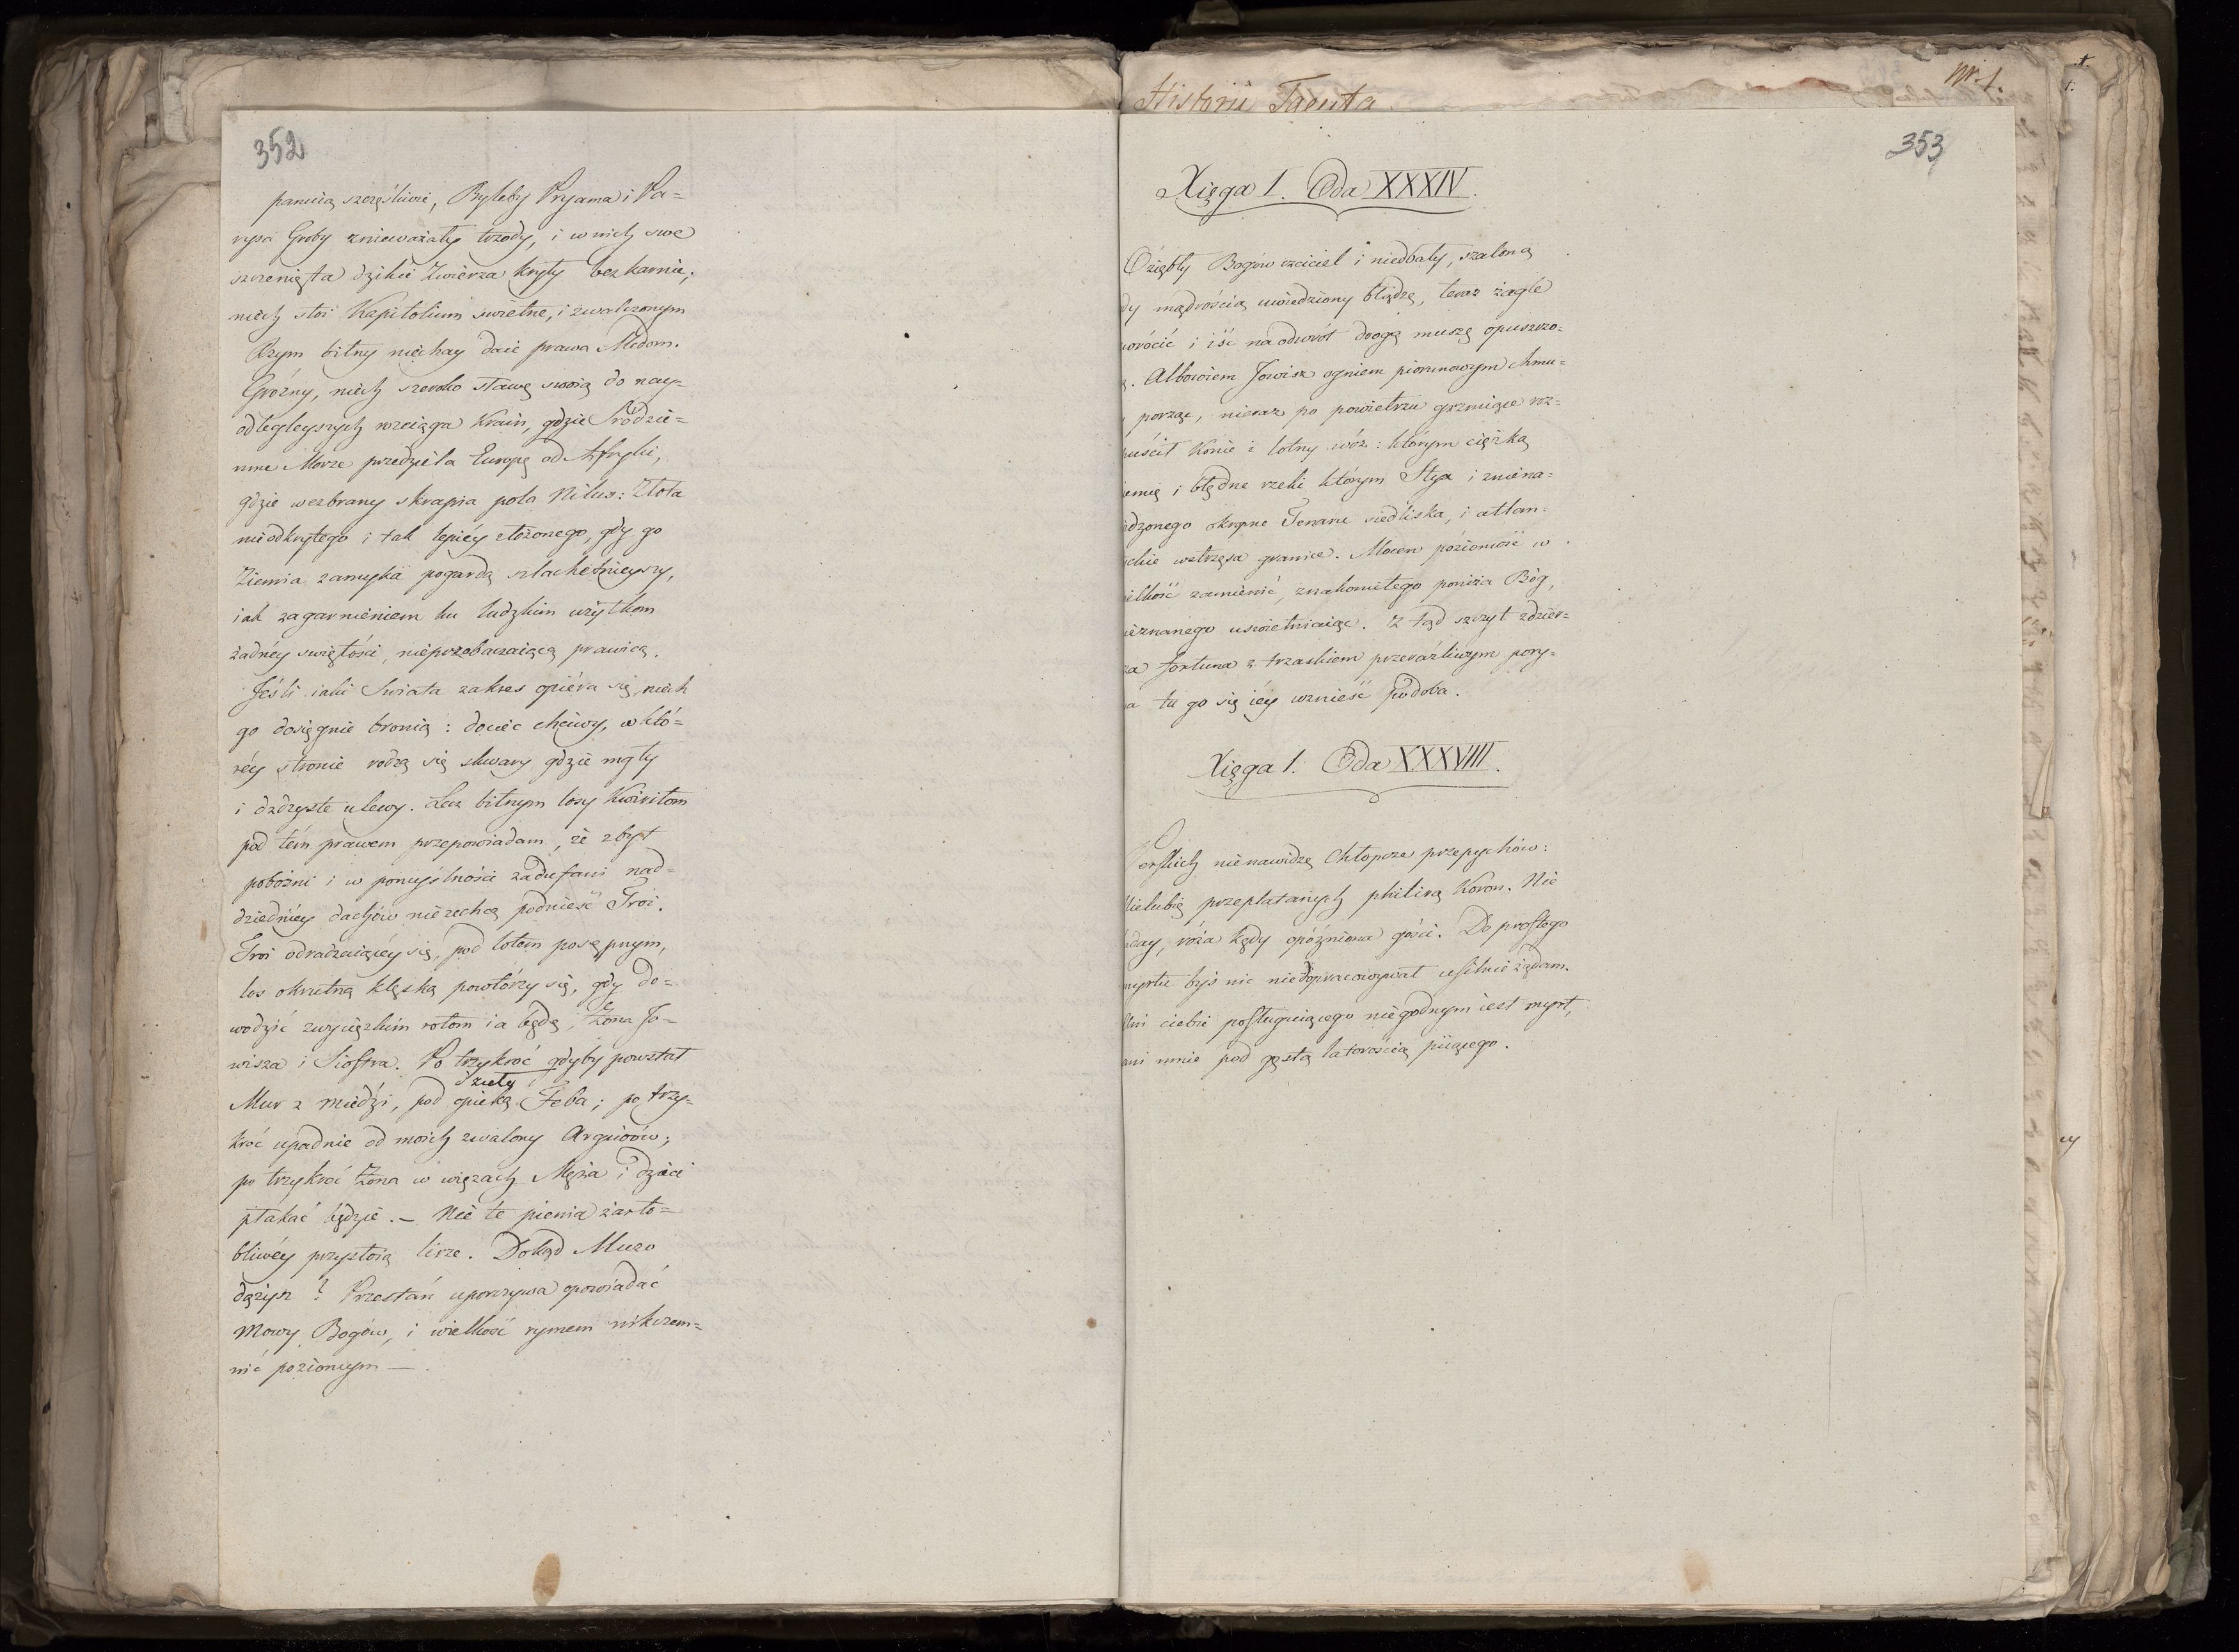 352
panuią szczęśliwi, Byleby Pryama i Pa=
rysa Groby znieważały trzody, i w nich swe
szczenięta dzikie Zwierza kryły bezkarnie;
niech stoi Kapitolium swietne, i zwalczonym
Rzym bitny niechay daie prawa Medom.
Groźny, niech szeroko sławę swoią do nay=
odlegleyszych rozciąga Krain, gdzie Sródzie=
mne Morze przedziela Europę od Afryki,
gdzie wezbrany skrapia pola Nilus: Złota
nieodkrytego i tak lepiéy złożonego, gdy go
Ziemia zamyka pogardą szlachetnieyszy,
iak zagarnieniem ku ludzkim użytkom
żadnéy swiętości, nieprzebaczaiącą prawicą.
Jeśli iaki Swiata zakres opiéra się, niech
go dosięgnie bronią: dociec chciwy, w któ=
réy stronie rodzą się skwary gdzie mgły
i dżdzyste ulewy. Lecz bitnym losy Kwiritom
pod tém prawem przepowiadam, że zbyt
pobożni i w pomyślności zadufani nad=
dziednéy dachów niezechcą podnieść Troi.
Troi odradzaiącéy się, pod lotem posępnym,
los okrutną klęską powtórzy się, gdy do=
wodzić zwycięzkim rotom ia będę, Żona Jo=
wisza i Siostra. Po trzykroć gdyby powstał
Mur z miedzi, pod opieką Feba; po trzy=
kroć upadnie od moich zwalony Argiwów;
po trzykroć Żona w więzach Męża i dzieci
płakać będzie. — Nie te pienia żarto=
bliwéy przystoią lirze. Dokąd Muzo
dążysz? Przestań uporczywa opowiadać
Mowy Bogów, i wielkość rymem nikczem=
nić poziomym —
Historii Tacita
Nr. 1.
353
Xięga 1. Oda XXXIV.
Oziębły Bogów czciciel i niedbały, szaloną
dy mądrością uwiedziony błądzę, teraz żagle
wrócić i iść na odwrót drogą muszę opuszczo=
ą. Albowiem Jowisz ogniem piorunowym chmu=
porząc, nieraz po powietrzu grzmiące roz=
puścił Konie i lotny wóz: którym ciężką
iemię i błędne rzeki którym Styx i zniena=
idzonego okropne Tenaru siedliska, i atlan=
ckie wstrząsa granice. Mocen poziomość w
ielkość zamienić, znakomitego poniża Bóg,
ieznanego uswietniaiąc. Z tąd szczyt zdzier=
za fortuna z trzaskiem przeraźliwym pory=
a tu go się iéy wznieść podoba.
Xięga 1. Oda XXXVIII.
Perskich nienawidzę Chłopcze przepychów:
Nielubię przeplatanych philirą Koron. Nie
aday, róża kędy opóźniona gości. Do prostego
myrtu byś nic niedopracowywał usilnie żądam.
Ani ciebie posługuiącego niegodnym iest myrt,
ani mnie pod gęstą latoroślą piiącego.